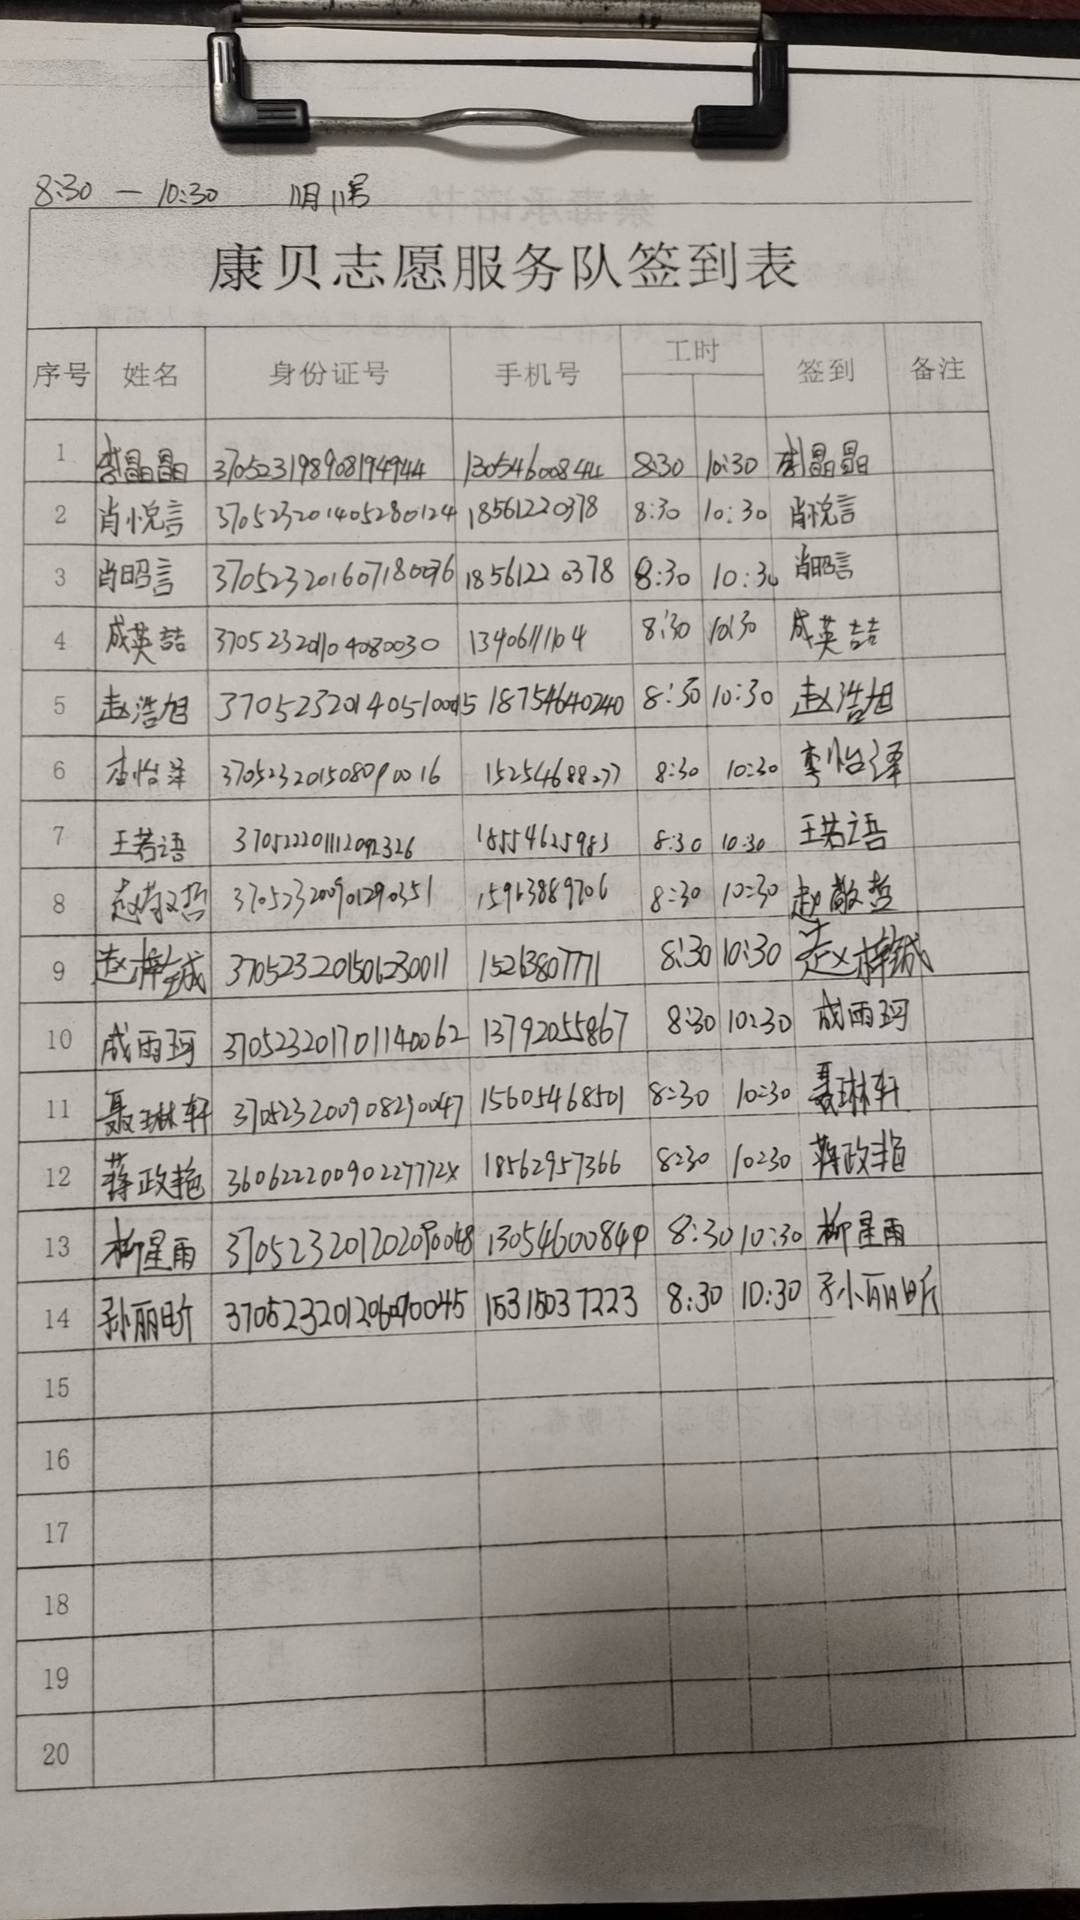 8:30 — 10:30 11月11号
康贝志愿服务队签到表
序号 姓名 身份证号 手机号 工时 签到 备注
1 李晶晶 370523198908194944 13054600844 8:30 10:30 李晶晶
2 肖悦言 370523201405280124 18561220378 8:30 10:30 肖悦言
3 肖昭言 370523201607180076 18561220378 8:30 10:30 肖昭言
4 成英喆 8:30 10:30 成英喆
5 赵浩旭 18754640240 8:30 10:30 赵浩旭
6 李怡泽 370523201508090016 15254688277 8:30 10:30 李怡泽
7 王若语 18554625983 8:30 10:30 王若语
8 赵敬哲 370523200901290351 15963889706 8:30 10:30 赵敬哲
9 赵梓铖 370523201506230011 15263807771 8:30 10:30 赵梓铖
10 成雨珂 370523201701140062 13792055867 8:30 10:30 成雨珂
11 聂琳轩 370523200908290047 15605468501 8:30 10:30 聂琳轩
12 蒋政艳 36062220090227772X 18562957366 8:30 10:30 蒋政艳
13 柳星雨 370523201202090048 13054600844 8:30 10:30 柳星雨
14 孙丽昕 370523201206090045 15315037223 8:30 10:30 孙丽昕
15
16
17
18
19
20